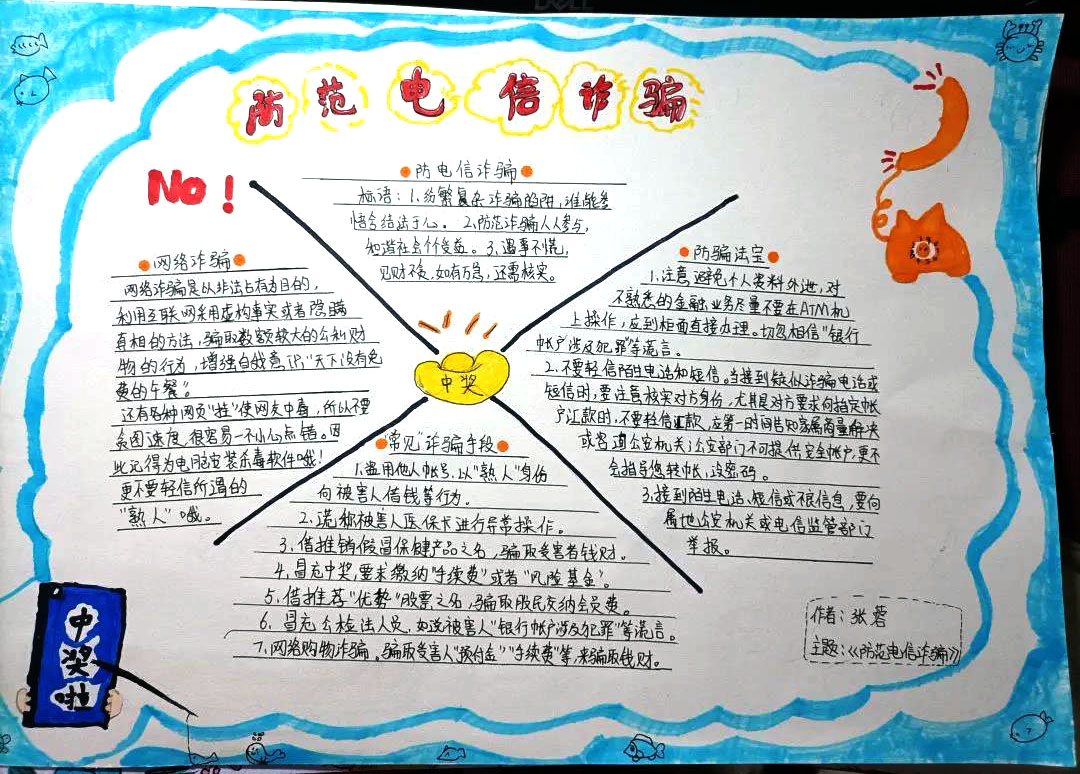 防范电信诈骗
NO!
防电信诈骗
标语：1.纷繁复杂诈骗陷阱,谁能参
悟含结法于心。 2.防范诈骗人人参与,
和谐社会个个受益。3.遇事不慌,
见财不贪,如有万急,还需核实。
网络诈骗
网络诈骗是以非法占有为目的,
利用互联网采用虚构事实或者隐瞒
真相的方法,骗取数额较大的公私财
物的行为,增强自我意识,"天下没有免
费的午餐"。
还有名种网页"挂"使网友中毒,所以不要
贪图速度,很容易一不小心点错。因
此记得为电脑安装杀毒软件哦!
更不要轻信所谓的
"熟人"哦。
防骗法宝
1.注意避免个人资料外泄,对
不熟悉的金融业务尽量不要在ATM机
上操作,应到柜面直接办理。切忽相信"银行
帐户涉及犯罪"等谎言。
2.不要轻信陌生电话和短信,当接到疑似诈骗电话或
短信时,要注意核实对方身份,尤其是对方要求向指定帐
户汇款时,不要轻信汇款,应第一时间告知家属商量解决
或咨询公安机关;公安部门不可提供安全帐户,更不
会指导您转帐,设密码。
3.接到陌生电话、短信或不良信息,要向
属地公安机关或电信监管部门
举报。
中奖
常见"诈骗手段
1.盗用他人帐号,以"熟人"身份
向被害人借钱等行为。
2.谎称被害人医保卡进行异常操作。
3.借推销假冒保健产品之名,骗取受害者钱财。
4.冒充中奖,要求缴纳"手续费"或者"风险基金"。
5.借推荐"优势"股票之名,骗取股民交纳会员费。
6.冒充公检法人员,如说被害人"银行帐户涉及犯罪"等谎言。
7.网络购物诈骗。骗取受害人"预付金""手续费"等,来骗取钱财。
中奖啦
作者：张蓉
主题：《防范电信诈骗》